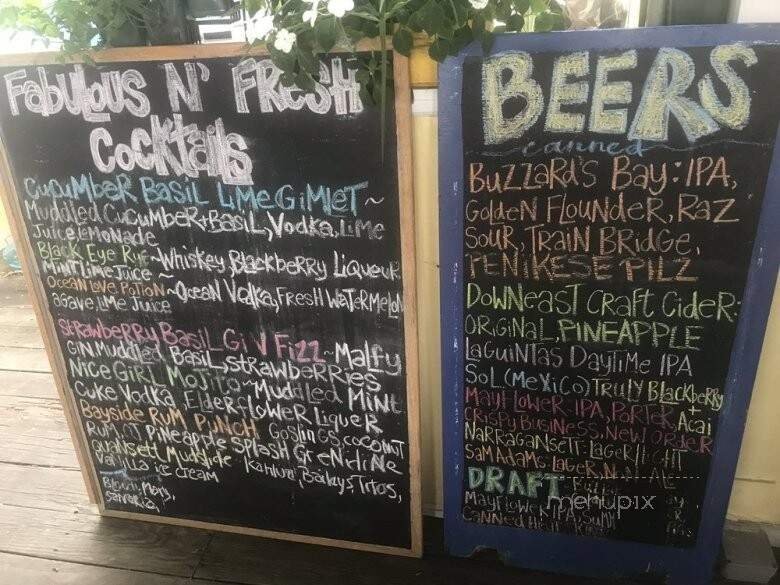 FabULOUS N' FResH
CockTails
CuCuMbeR BasiL LiMe GiMLeT ~
Muddled CuCuMbeR + BasiL, Vodka, LiMe
Juice LeMoNade
Black Eye Rye ~ Whiskey, BLackbeRRy LiQueuR
MiNT Lime Juice
Ocean Love PoTioN ~ Ocean Vodka, FResH WaTeRMeloN
agave, Lime Juice
STRawbeRRy BasiL GiN Fizz ~ MaLfy
GiN Muddled BasiL, STRawbeRRies
Nice GiRL MojiTo ~ Muddled MiNT
Cuke Vodka, ELdeRfLoweR LiqueR
Bayside RuM PuNCH GosliNgs, cocoNuT
RuM, OJ, PiNeappLe SpLasH GReNadiNe
QuaNseTT Mudslide KaHLua, BaiLeys, TiTos,
VaNilla ice cReam
BLoody MaRy,
SaNgRia,
BEERS
canned
BuZZaRd's Bay: IPA,
GoLdeN FLouNdeR, RaZ
SouR, TRaiN BRidge,
PENiKESE PiLZ
DowNeasT CRafT CideR:
ORiGiNaL, PiNEAPPLE
LaGuiNTas DayTiMe IPA
SoL (MeXiCo) TRuLy BLackbeRRy
+ Acai
MayfLoweR: IPA, PoRTeR,
CRispy BusiNess, New ORdeR
NaRRagaNseTT: LageR, LiGHT
SaM AdaMs: LageR, NoN ALE
DRAFT
MayfLoweR IPA, SuMM
CaNNed
menupix